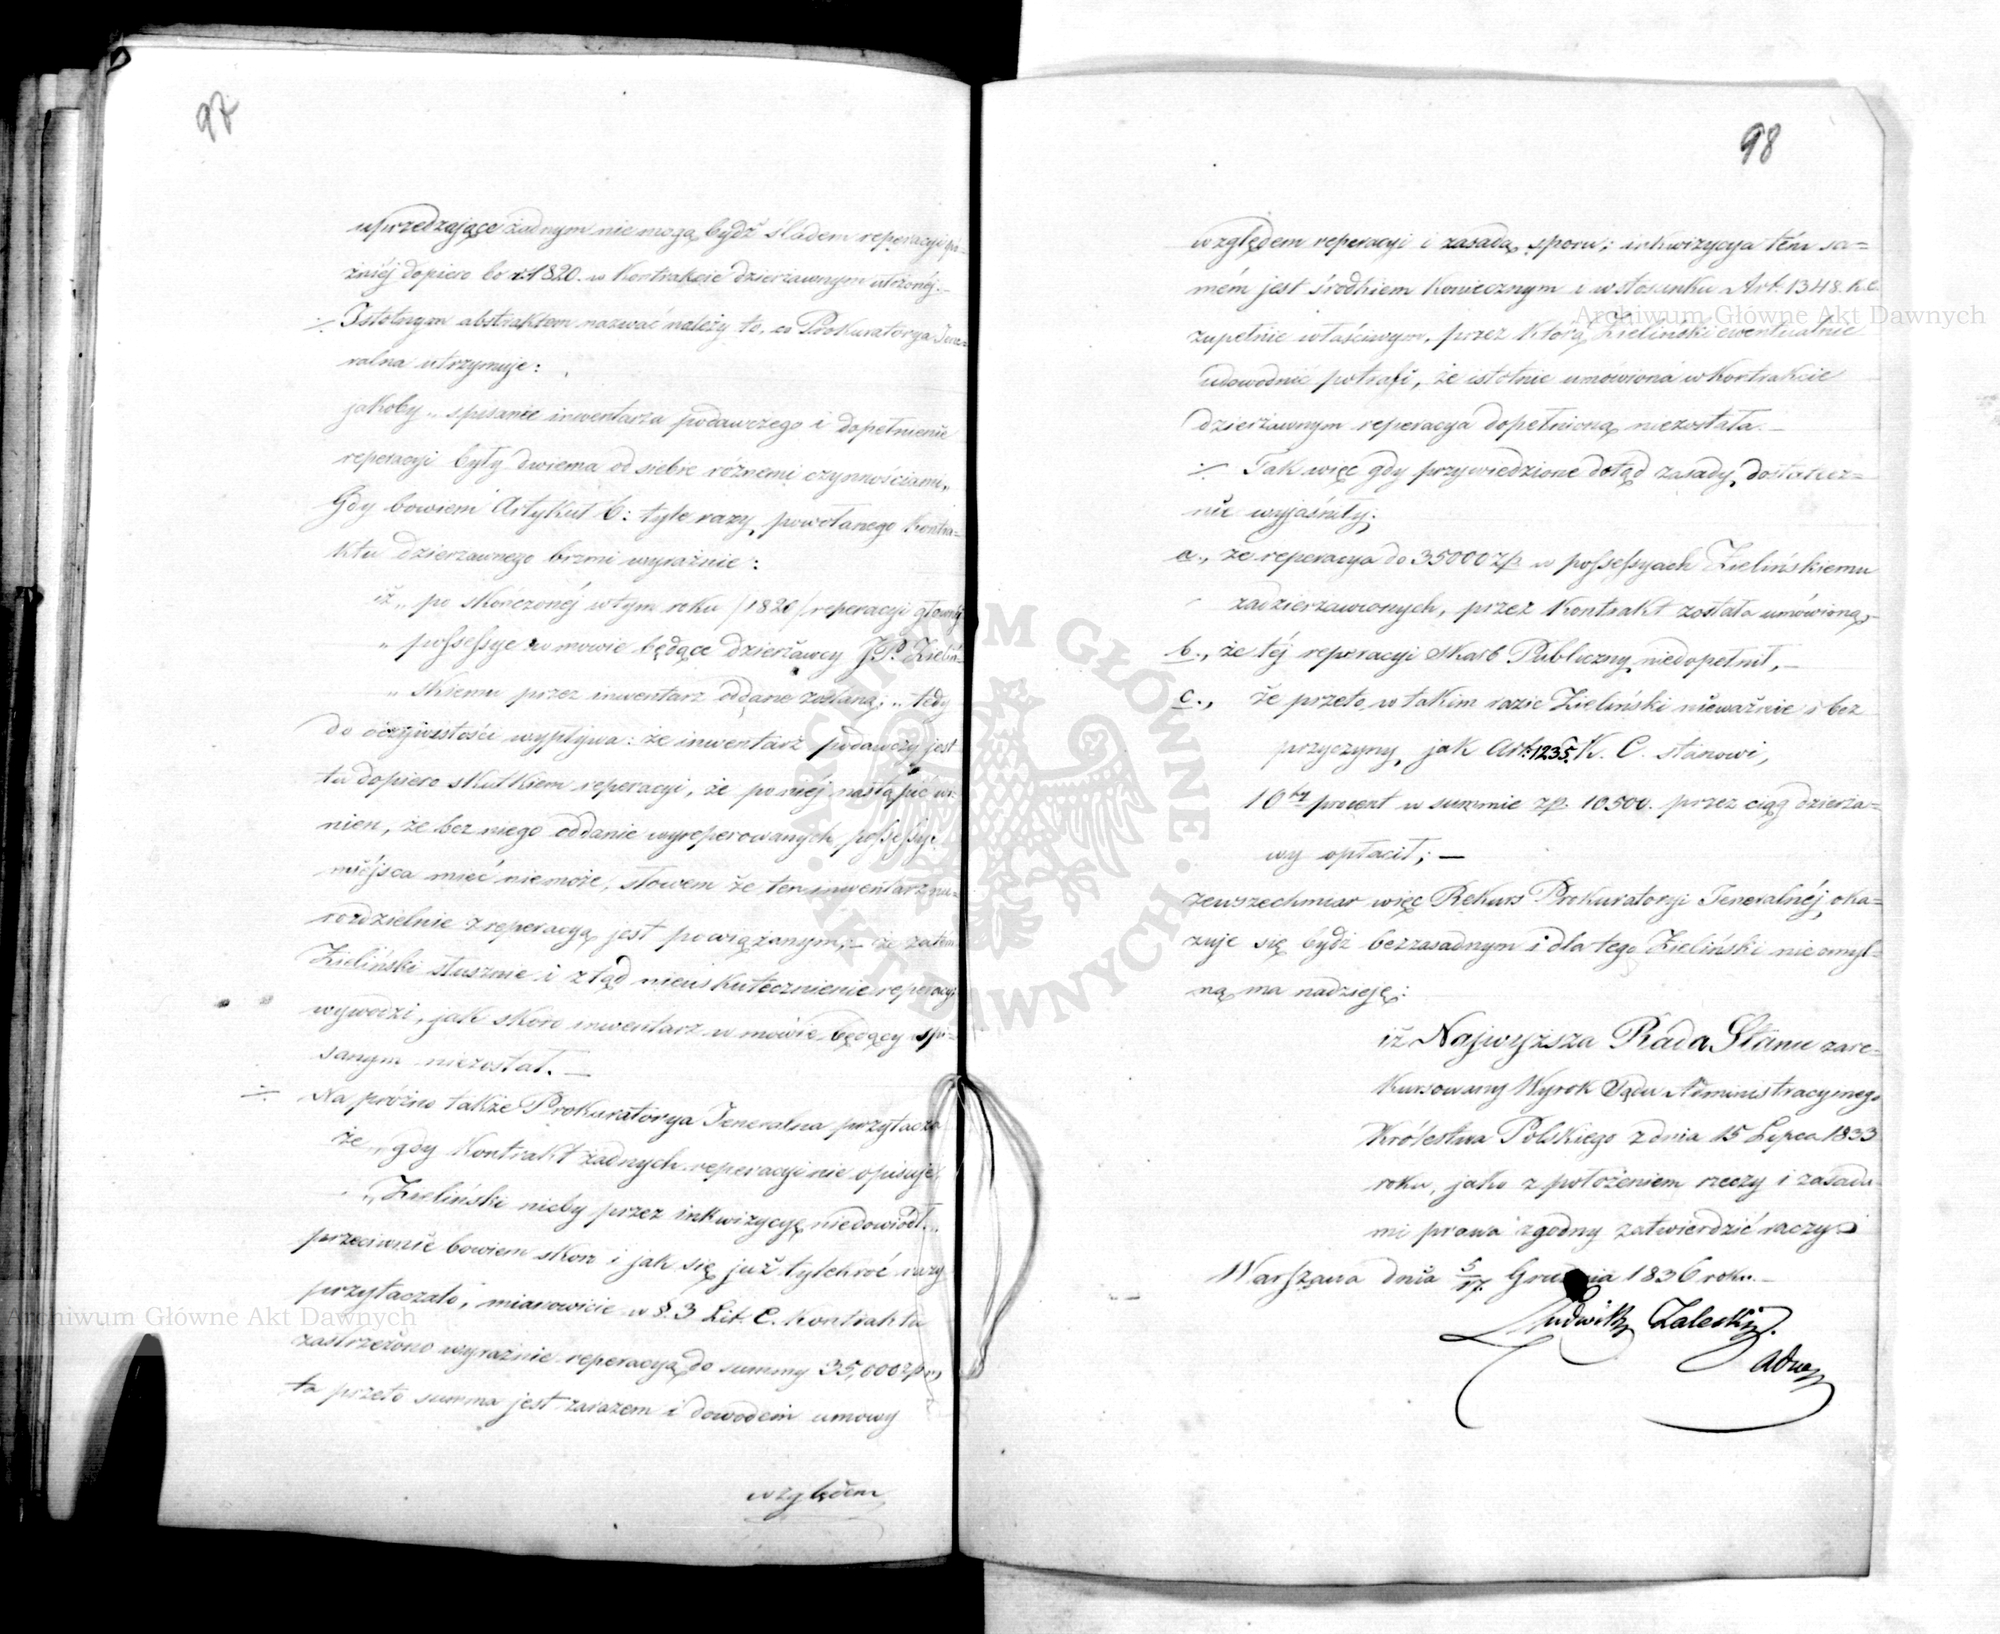 97
uprzedzające żadnym nie mogą bydź śladem reperacyi pó=
źniéj dopiero bo r. 1820. w Kontrakcie dzierżawnym
÷ Istotnym abstraktem nazwać należy to, co Prokuratorya Jene=
ralna utrzymuje:
jakoby „spisanie inwentarza podawczego i dopełnienie
reperacyi były dwiema od siebie różnemi czynnościami„
Gdy bowiem Artykuł 6: tyle razy powołanego Kontra=
ktu dzierżawnego brzmi wyraźnie:
iż „po skończonéj w tym roku /1820/ reperacyi głównéj
„possessye w mowie będące dzierżawcy JP. Zieliń=
„skiemu przez inwentarz oddane zostaną; „tedy
do oczywistości wypływa: że inwentarz podawczy jest
tu dopiero skutkiem reperacyi, że po niéj nastąpić wi=
nien, że bez niego oddanie wyreperowanych possessyi
miéjsca mieć nie może, słowem że ten inwentarz nie=
rozdzielnie z reperacyą jest powiązanym, – że zatem
Zieliński słusznie i ztąd nieuskutecznienie reperacyi
wywodzi, jak skoro inwentarz w mowie będący spi=
sanym niezostał. –
÷ Na próżno także Prokuratorya Jeneralna przytacza
że „gdy Kontrakt żadnych reperacyi nie opisuje,
„Zieliński nicby przez inkwizycyę niedowiódł„
przeciwnie bowiem skoro i jak się już tylekroć razy
przytaczało, mianowicie w §. 3 Lit. C. Kontraktu
zastrzeżono wyraźnie reperacyą do summy 35,000 zp.
ta przeto summa jest zarazem i dowodem umowy
względem
98
względem reperacyi i zasadą sporu; inkwizycya tém sa=
mém jest środkiem koniecznym i w stosunku Art. 1348. K.C.
zupełnie właściwym, przez którą Zieliński ewentualnie
udowodnić potrafi, że istotnie umówiona w Kontrakcie
dzierżawnym reperacya dopełnioną niezostała. –
÷ Tak więc gdy przywiedzione dotąd zasady dostatecz=
nie wyjaśniły;
a., że reperacya do 35000 zp. w possessyach Zielińskiemu
zadzierżawionych, przez Kontrakt została umówioną,
b., że téj reperacyi Skarb Publiczny niedopełnił, –
c., że przeto w takim razie Zieliński nieważnie i bez
przyczyny, jak Art. 1235. K. C. stanowi,
10ty procent w summie zp. 10.500. przez ciąg dzierża=
wy opłacił; –
zewszechmiar więc Rekurs Prokuratoryi Jeneralnéj oka=
zuje się bydź bezzasadnym i dla tego Zieliński nieomyl=
ną ma nadzieję:
iż Najwyższa Rada Stanu zare=
kursowany Wyrok Sądu Administracyjnego
Królestwa Polskiego z dnia 15 Lipca 1833
roku, jako z położeniem rzeczy i zasada=
mi prawa zgodny zatwierdzić raczy.
Warszawa dnia 5/17. Grudnia 1836 roku. –
Ludwik Zaleski.
Adw.
Archiwum Główne Akt Dawnych
Archiwum Główne Akt Dawnych
ARCHIWUM GŁÓWNE · AKT DAWNYCH ·